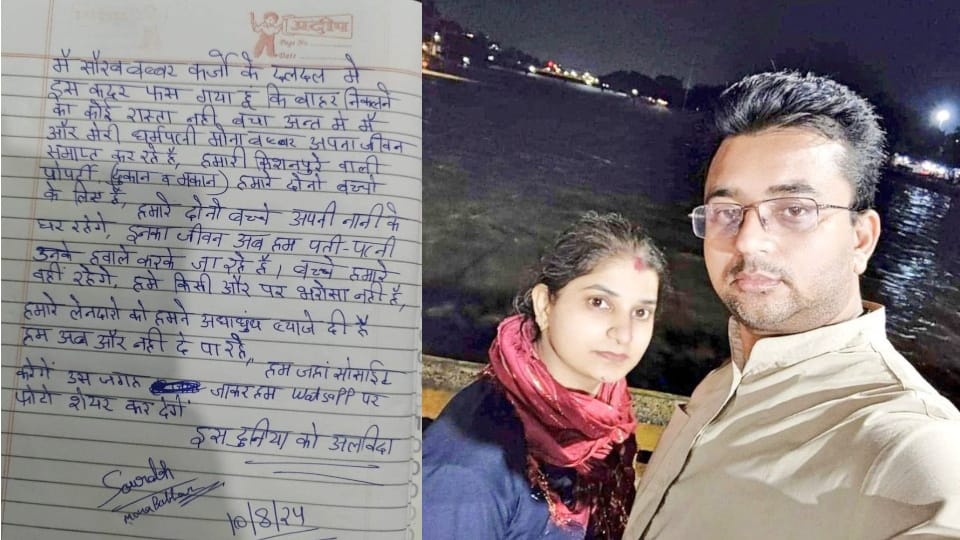 प्रदीप
Page No.
Date
मैं सौरव बब्बर कर्जो के दलदल मे
इस कदर फस गया हूं कि बाहर निकलने
का कोई रास्ता नही बचा अन्त मे मैं
और मेरी धर्मपत्नी मोना बब्बर अपना जीवन
समाप्त कर रहे है, हमारी किशनपुरे वाली
प्रोपर्टी (दुकान व मकान) हमारे दोनो बच्चो
के लिए है, हमारे दोनो बच्चे अपनी नानी के
घर रहेगे, इनका जीवन अब हम पती-पत्नी
उनके हवाले करके जा रहे है। बच्चे हमारे
वहीं रहेगे, हमे किसी और पर भरोसा नही है,
हमारे लेनदारो को हमने अंधाधुंध ब्याजे दी है
हम अब और नही दे पा रहे, हम जहां सोसाइट
करेगें उस जगह जाकर हम Watsapp पर
फोटो शेयर कर देगें
इस दुनिया को अलविदा
Sourabh
Mona Babbar
10/8/24